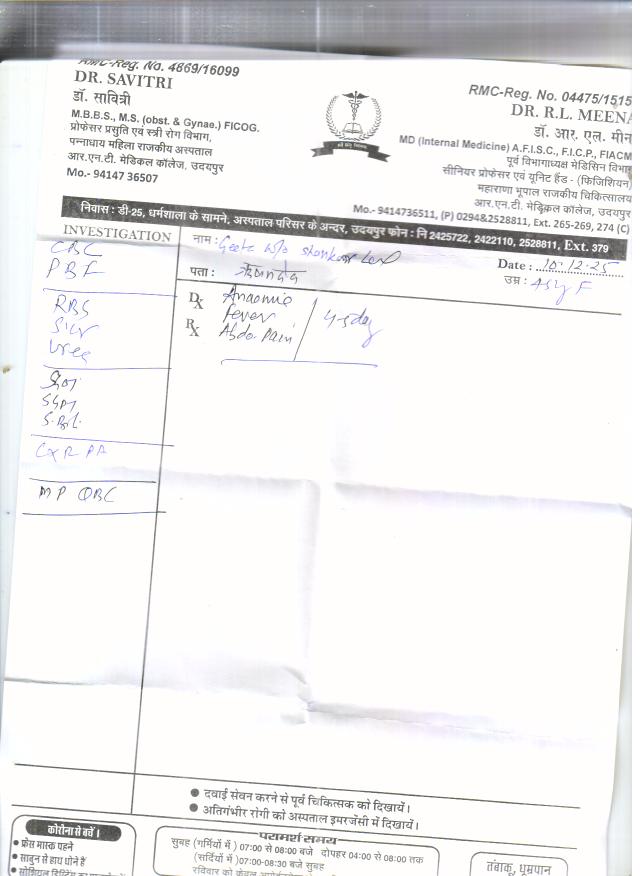 RMC-Reg. No. 4869/16099
DR. SAVITRI
डॉ. सावित्री
M.B.B.S., M.S. (obst. & Gynae.) FICOG.
प्रोफेसर प्रसुति एवं स्त्री रोग विभाग,
पन्नाधाय महिला राजकीय अस्पताल
आर.एन.टी. मेडिकल कॉलेज, उदयपुर
Mo.- 94147 36507
RMC-Reg. No. 04475/1515
DR. R.L. MEENA
डॉ. आर. एल. मीन
MD (Internal Medicine) A.F.I.S.C., F.I.C.P., FIACM
पूर्व विभागाध्यक्ष मेडिसिन विभाग
सीनियर प्रोफेसर एवं यूनिट हैड - (फिजिशियन)
महाराणा भूपाल राजकीय चिकित्सालय
आर.एन.टी. मेडिकल कॉलेज, उदयपुर
Mo.- 9414736511, (P) 0294&2528811, Ext. 265-269, 274 (C)
निवास : डी-25, धर्मशाला के सामने, अस्पताल परिसर के अन्दर, उदयपुर फोन : नि 2425722, 2422110, 2528811, Ext. 379
INVESTIGATION
CBC
PBF
RBS
Urea
CXR PA
MP QBC
नाम : Geeta w/o Shankar Lal
Date : 10.12.25
पता :
उम्र : 45y F
Dx Anaemia
Fever
Rx Abdo. Pain
4-5 day
● दवाई सेवन करने से पूर्व चिकित्सक को दिखायें।
● अतिगंभीर रोगी को अस्पताल इमरजेंसी में दिखायें।
कोरोना से बचें ।
● फ्रेस मास्क पहने
● साबुन से हाथ धोने हैं
परामर्श समय
सुबह (गर्मियों में ) 07:00 से 08:00 बजे दोपहर 04:00 से 08:00 तक
(सर्दियों में) 07:00-08:30 बजे सुबह
तंबाकू, धूम्रपान